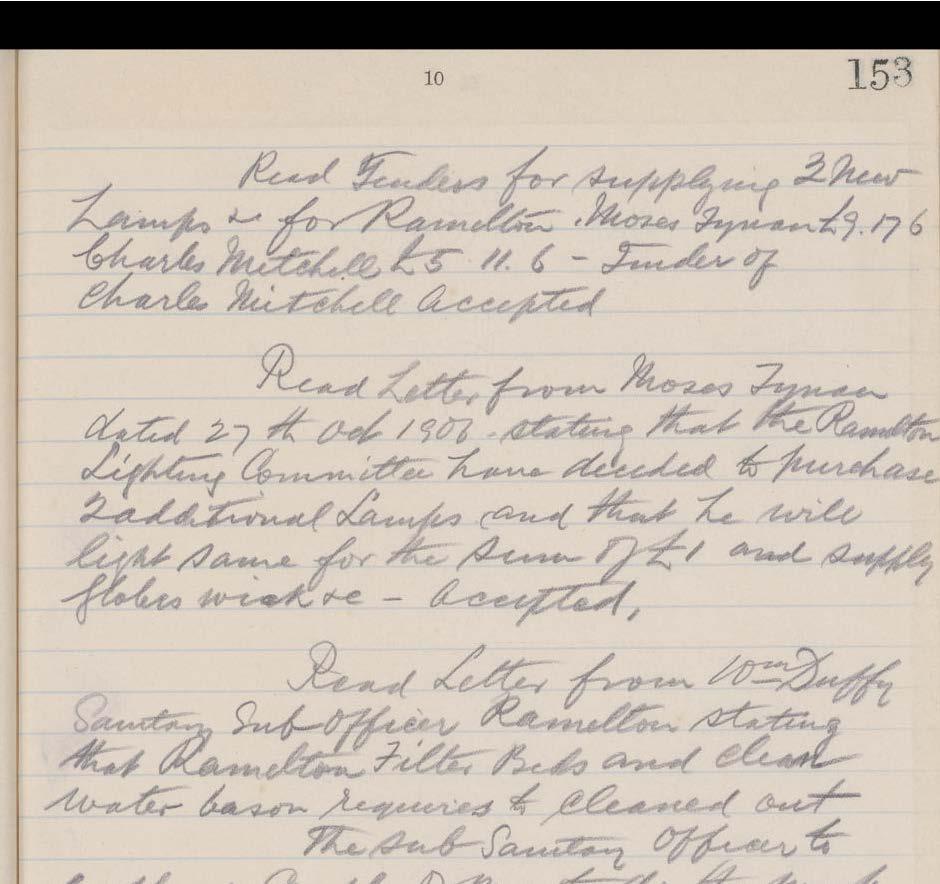 10
153
Read Tenders for supplying 2 New
Lamps &c for Ramelton. Moses Tynan £9.17 6
Charles Mitchell £5 11. 6 - Tender of
Charles Mitchell Accepted
Read Letter from Moses Tynan
dated 27th Oct 1906 - stating that the Ramelton
Lighting Committee have decided to purchase
2 additional Lamps and that he will
light same for the sum of £1 and supply
globes wick &c - Accepted,
Read Letter from Wm Duffy
Sanitary Sub Officer Ramelton stating
that Ramelton Filter Beds and clean
water bason requires to cleaned out
The Sub Sanitary Officer to